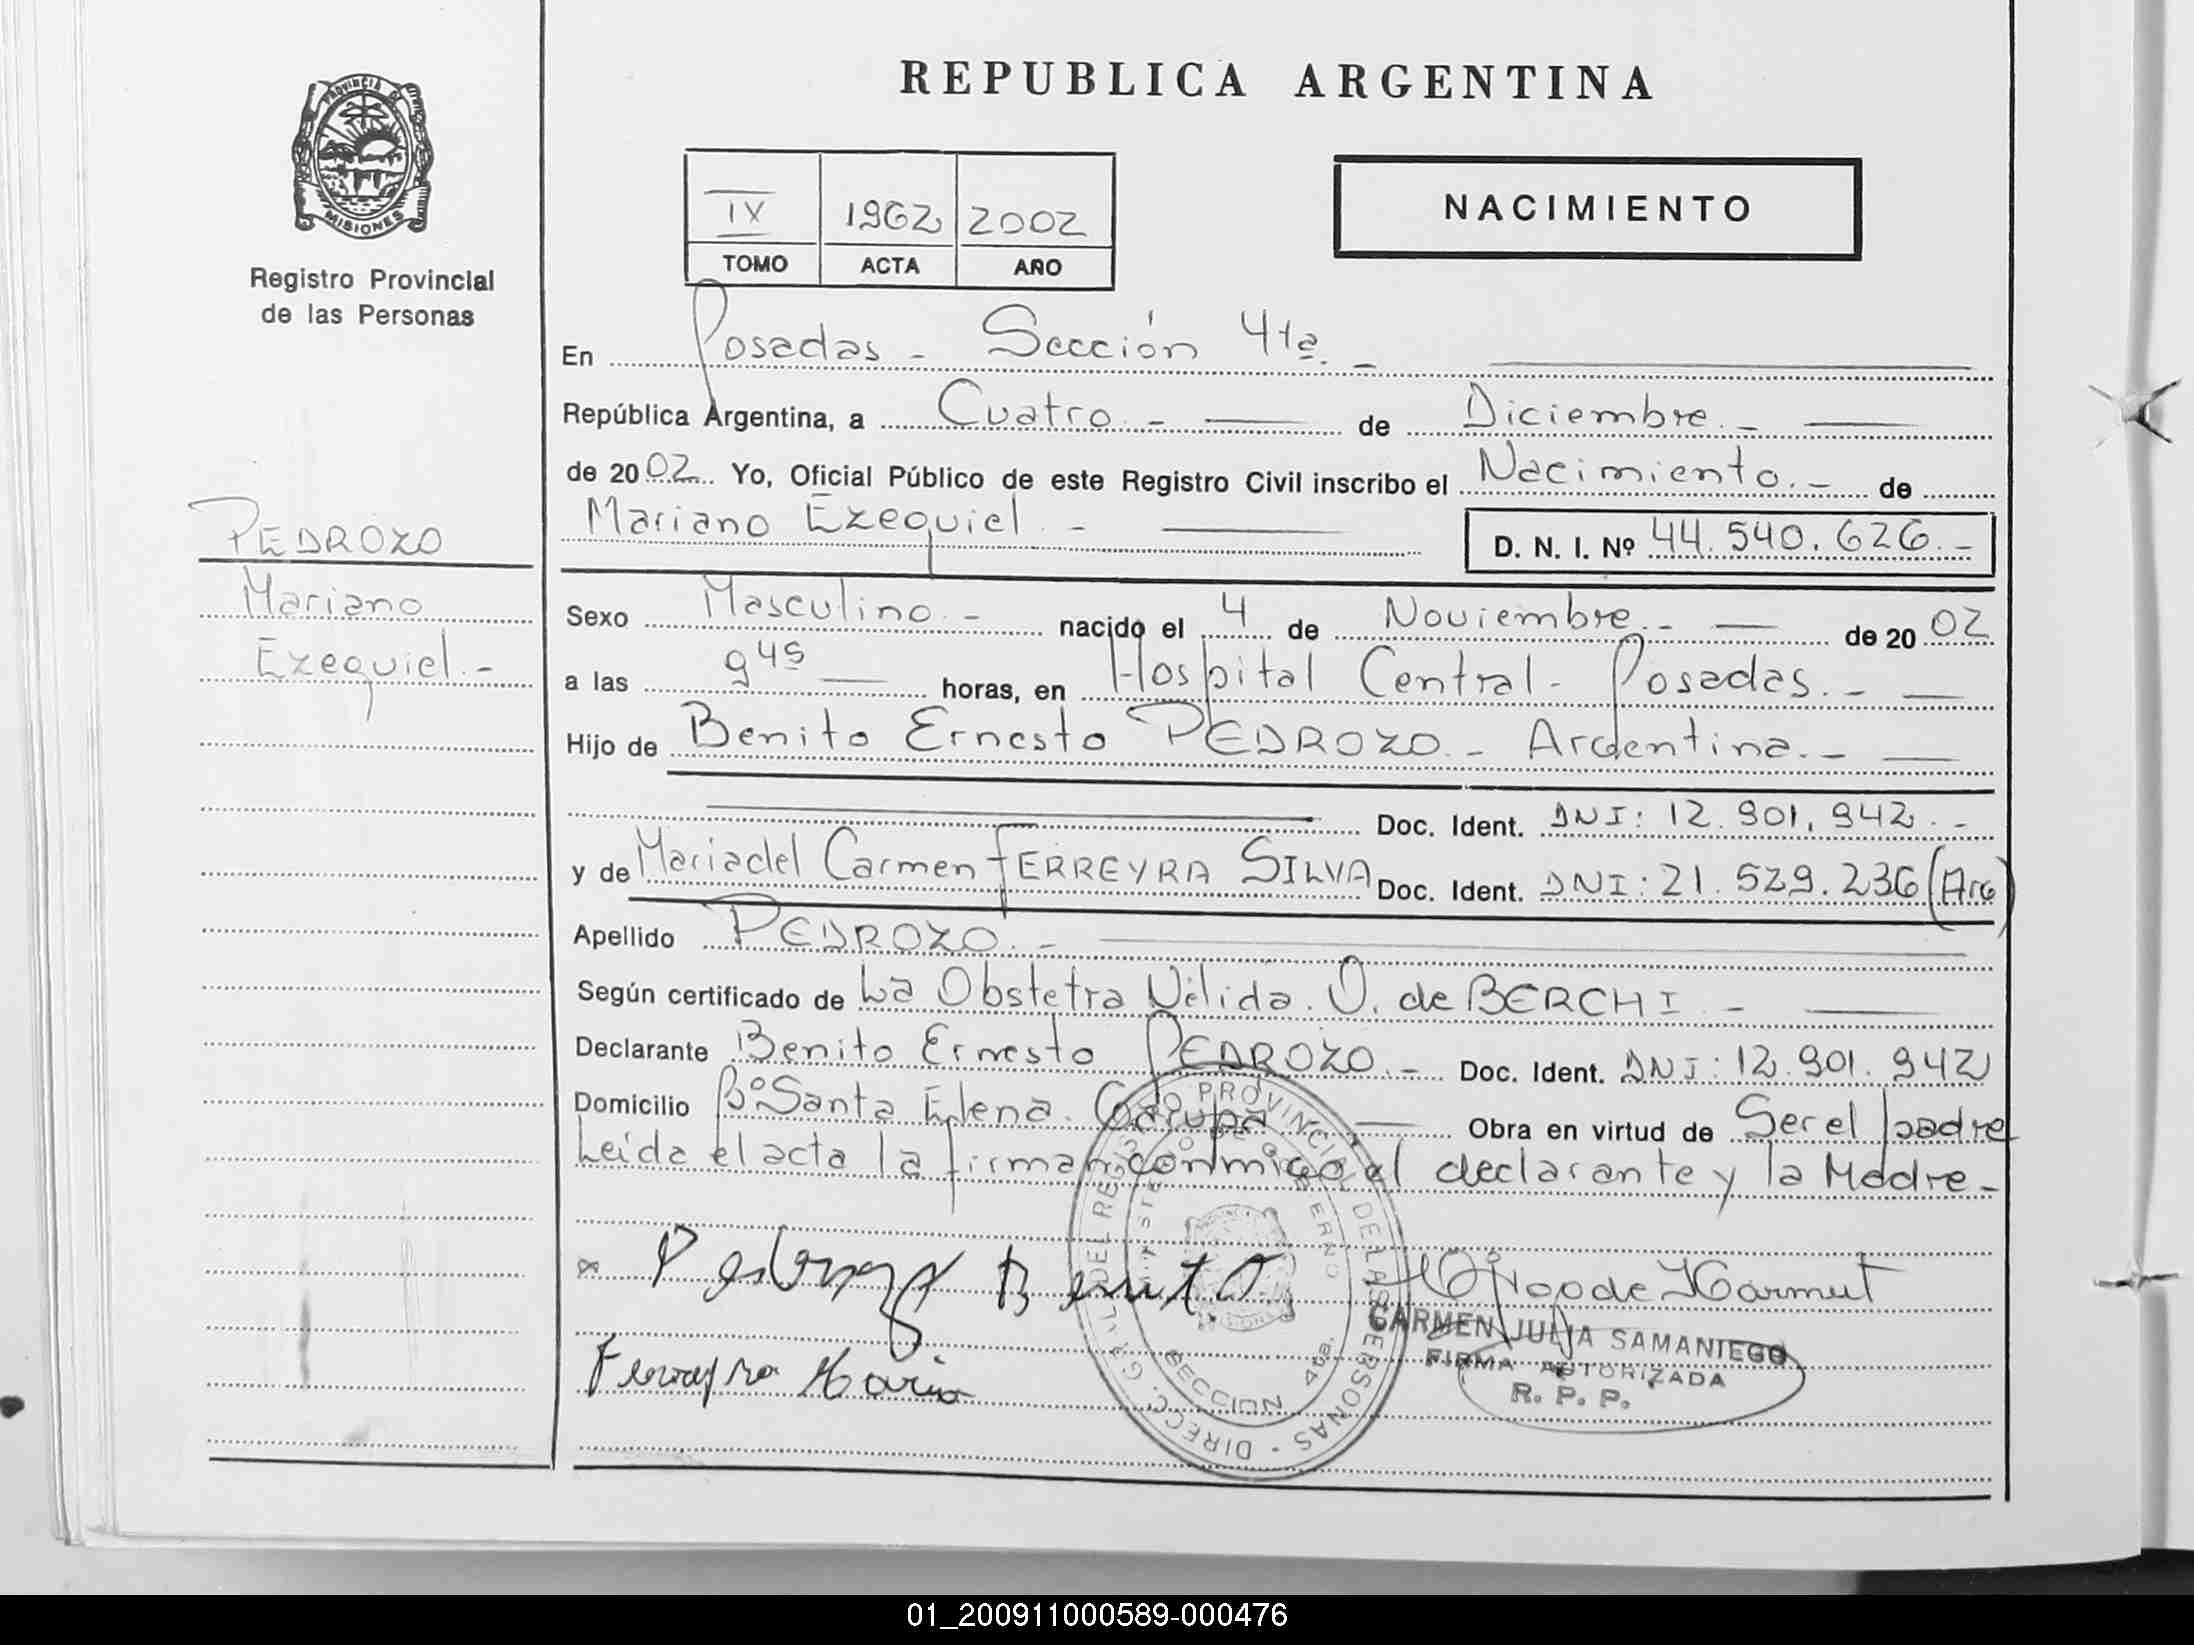 REPUBLICA ARGENTINA
PROVINCIA DE
MISIONES
Registro Provincial
de las Personas
IX 1962 2002
TOMO ACTA AÑO
NACIMIENTO
En Posadas - Sección 4ta. -
República Argentina, a Cuatro. - de Diciembre. -
de 2002. Yo, Oficial Público de este Registro Civil inscribo el Nacimiento. - de
Mariano Ezequiel. - D. N. I. Nº 44.540.626. -
PEDROZO
Mariano
Ezequiel. -
Sexo Masculino. - nacido el 4 de Noviembre. - de 2002
a las 9 45 horas, en Hospital Central - Posadas. -
Hijo de Benito Ernesto PEDROZO. - Argentina. -
Doc. Ident. DNI: 12.901.942. -
y de Maria del Carmen FERREYRA SILVA Doc. Ident. DNI: 21.529.236 (Arg)
Apellido PEDROZO. -
Según certificado de La Obstetra Nélida. O. de BERCHI. -
Declarante Benito Ernesto PEDROZO. - Doc. Ident. DNI: 12.901.942
Domicilio Bº Santa Elena. Garupá Obra en virtud de Ser el padre
Leida el acta la firman conmigo el declarante y la Madre -
Benito
Ferreyra Maria
DIRECC. GRAL. DEL REGISTRO PROVINCIAL DE LAS PERSONAS -
MINISTERIO DE GOBIERNO
MISIONES
SECCION 4ta.
CARMEN JULIA SAMANIEGO
FIRMA AUTORIZADA
R. P. P.
01_200911000589-000476